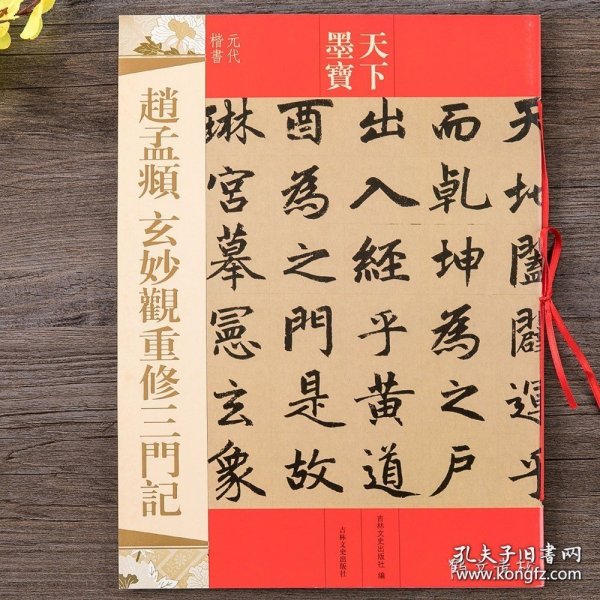 元代
楷書
天下
墨寶
趙孟頫 玄妙觀重修三門記
天地闔闢運乎
而乹坤為之戶
出入經乎黄道
酉為之門是故
琳宮摹憲玄象
吉林文史出版社 编
吉林文史出版社
孔夫子旧書网
www.kongfz.com